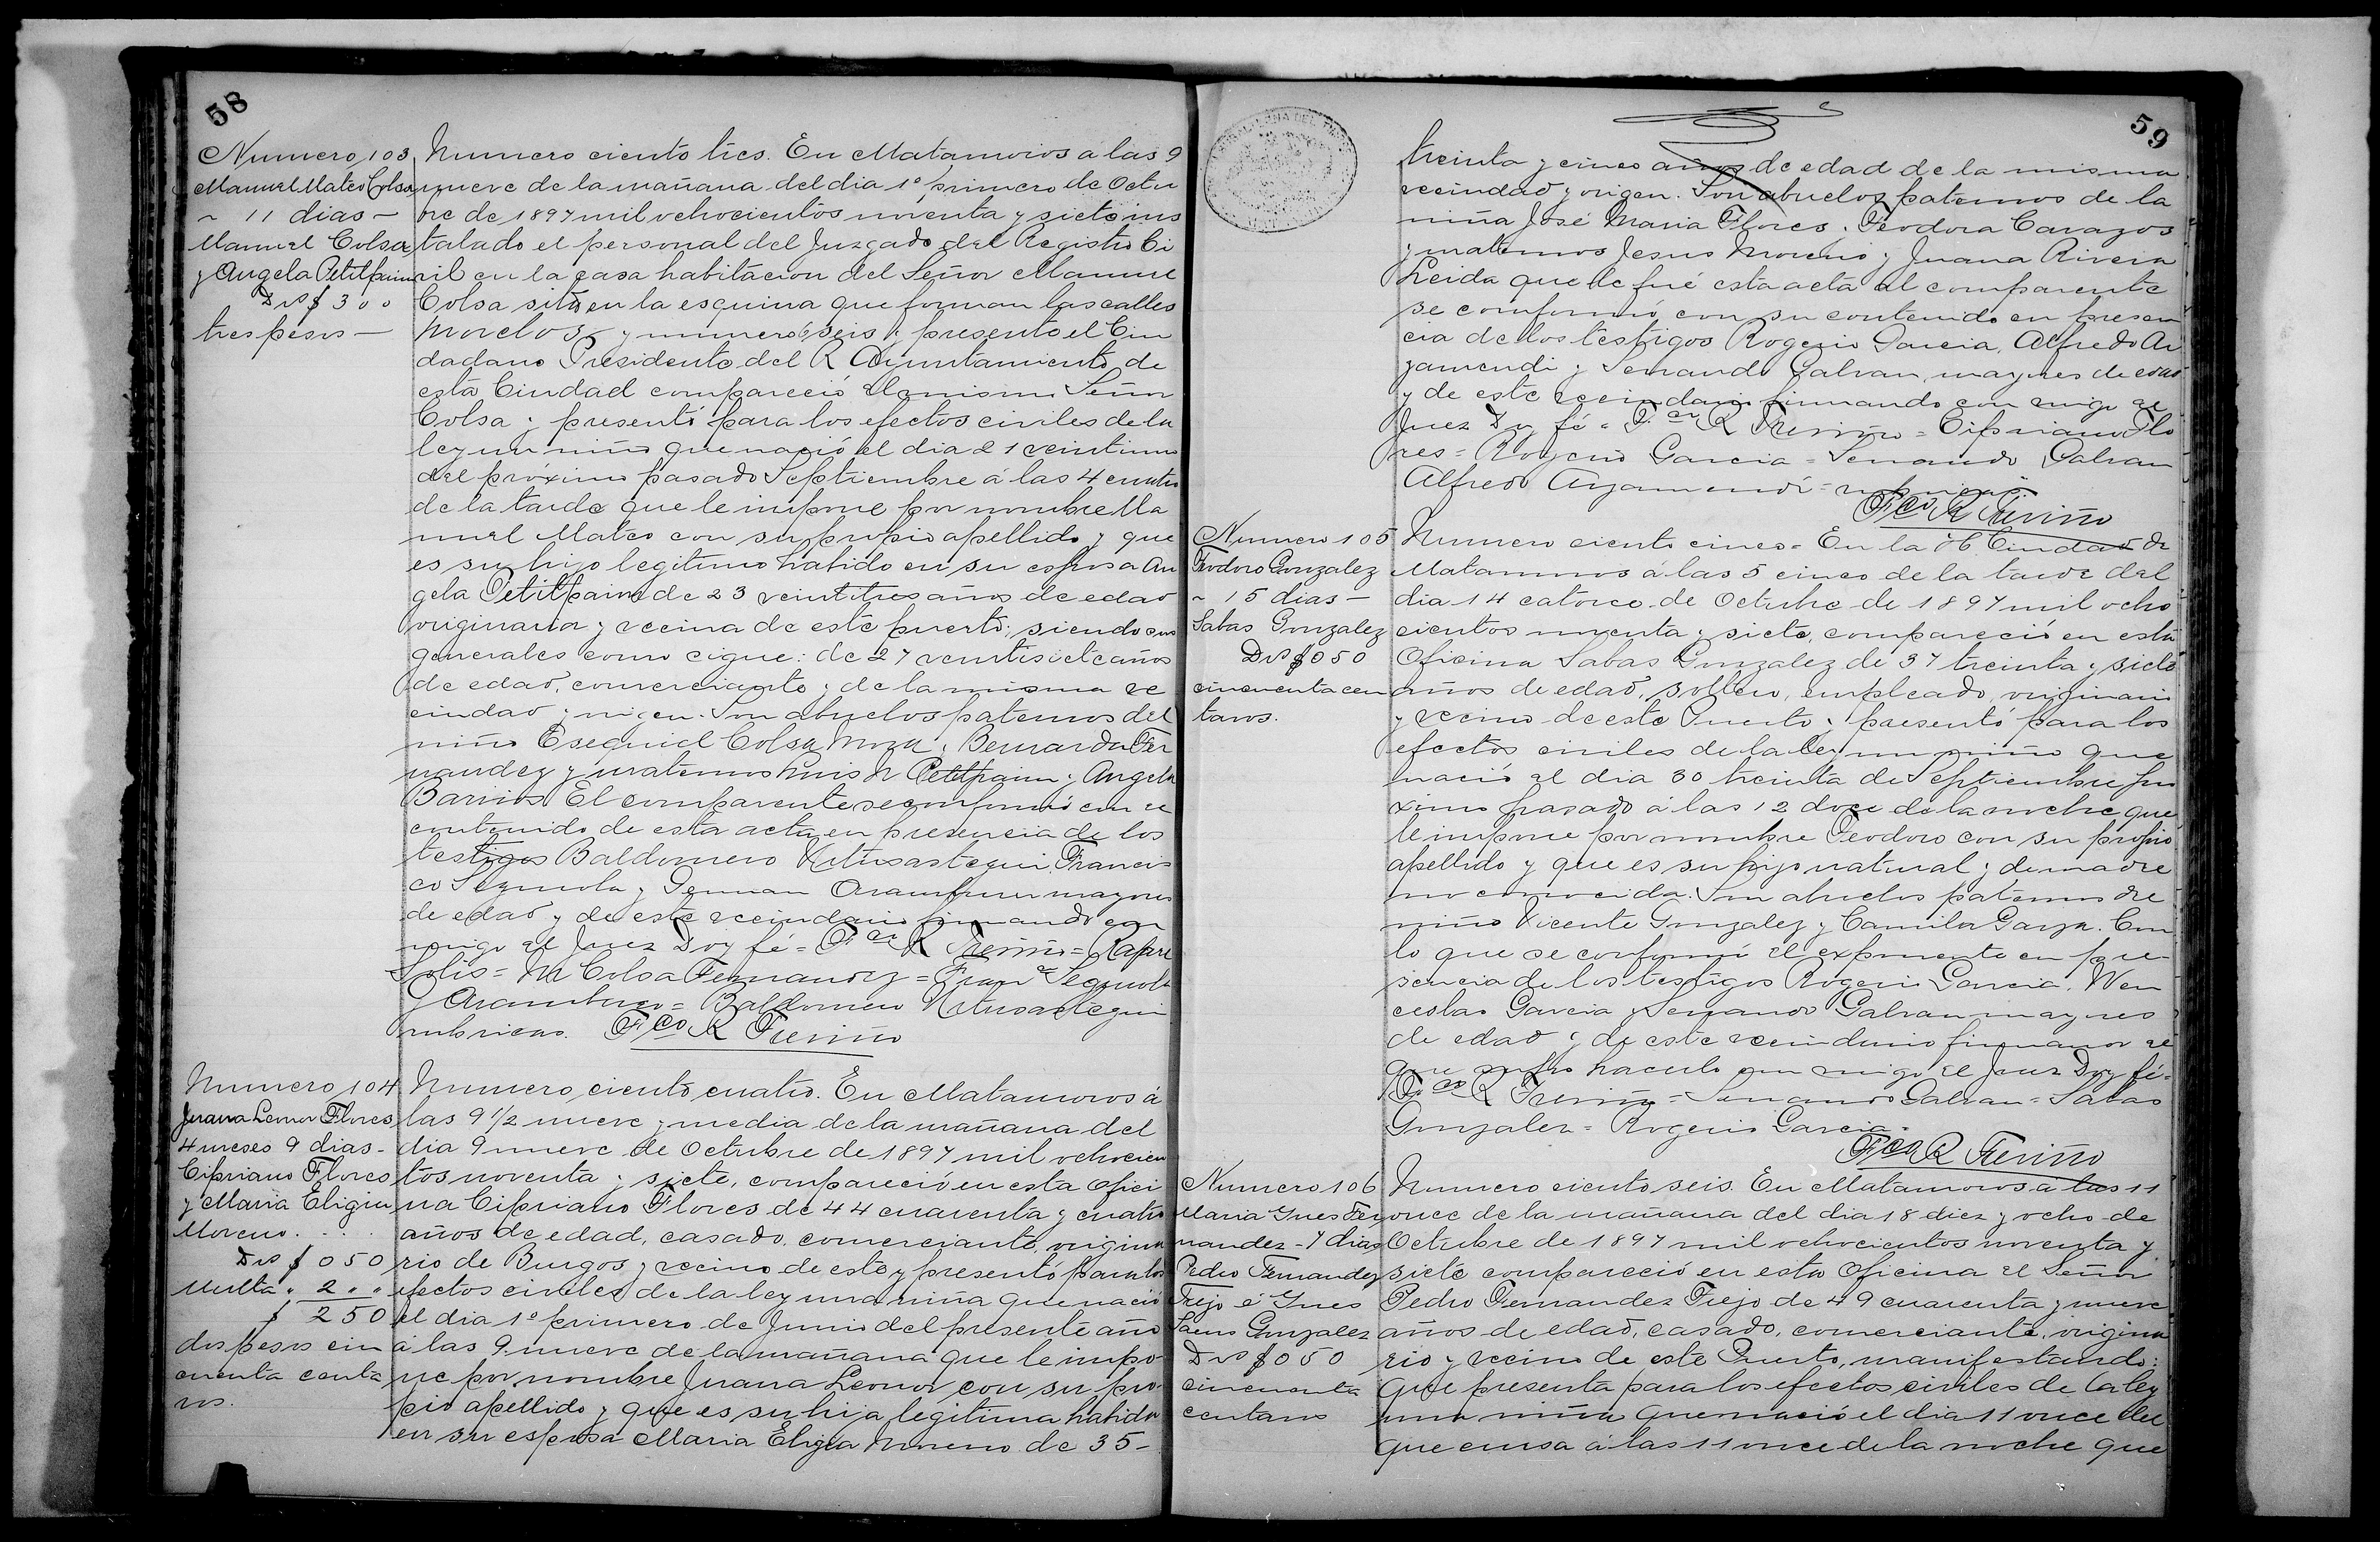 58
Numero 103
Manuel Mateo Colsa
~ 11 dias -
Manuel Colsa
y Angela Petitpain
Dros $ 3 00
tres pesos -
Numero ciento tres. En Matamoros a las 9
nueve de la mañana del dia 1º primero de Octu
bre de 1897 mil ochocientos noventa y siete ins
talado el personal del Juzgado del Registro Ci
vil en la casa habitacion del Señor Manuel
Colsa sita en la esquina que forman las calles
Morelos y numero seis y presente el Ciu
dadano Presidente del R Ayuntamiento de
esta Ciudad compareció el mismo Señor
Colsa y presentó para los efectos civiles de la
ley un niño que nació el dia 21 veintiuno
del próximo pasado Septiembre á las 4 cuatro
de la tarde que le impone por nombre Ma
nuel Mateo con su propio apellido y que
es su hijo legitimo habido en su esposa An
gela Petitpain de 23 veintitres años de edad
originaria y vecina de este puerto; siendo sus
generales como cigue: de 27 veintisiete años
de edad, comerciante y de la misma ve
cindad y origen. Son abuelos paternos del
niño Esequiel Colsa Mora y Bernarda Fer
nandez y maternos Luis N Petitpain y Angela
Barrios. El comparente se conformó con el
contenido de esta acta en presencia de los
testigos Baldomero Urtusastegui Francis-
co Segurola y German Aramburu mayores
de edad y de este vecindario firmando con
migo el Juez Doy fé = Fco R Treviño =
Solis = M Colsa Fernandez = Franco Segurola
G Aramburu = Baldomero Urtusastegui
rubricas. Fco R Treviño
Numero 104
Juana Leonor Flores
4 meses 9 dias -
Cipriano Flores
y Maria Eligia
Moreno. . . .
Dros $ 0 50
Multa " 2 " "
$ 2 50
dos pesos cin
cuenta centa
vos.
Numero ciento cuatro. En Matamoros á
las 9 1/2 nueve y media de la mañana del
dia 9 nueve de Octubre de 1897 mil ochocien
tos noventa y siete, compareció en esta ofici
na Cipriano Flores de 44 cuarenta y cuatro
años de edad, casado, comerciante, origina
rio de Burgos y vecino de este y presentó para los
efectos civiles de la ley una niña que nació
el dia 1º primero de Junio del presente año
á las 9 nueve de la mañana que le impo-
ne por nombre Juana Leonor con su pro-
pio apellido y que es su hija legitima habida
en su esposa Maria Eligia Moreno de 35-
59
treinta y cinco años de edad de la misma
vecindad y origen. Son abuelos paternos de la
niña José Maria Flores y Teodora Cavazos
y maternos Jesus Moreno y Juana Rivera
Leida que le fué esta acta al comparente
se conformó con su contenido en presen
cia de los testigos Rogerio Garcia, Alfredo Ar
gamendi y Servando Galvan, mayores de edad
y de este vecindario firmando con migo el
Juez Doy fé = Fco R Treviño = Cipriano Flo
res = Rogerio Garcia = Servando Galvan
Alfredo Argamendi = rubricas.
Fco R Treviño
Numero 105
Teodoro Gonzalez
~ 15 dias -
Sabas Gonzalez
Dros $ 0 50
cincuenta cen
tavos.
Numero ciento cinco = En la H. Ciudad de
Matamoros á las 5 cinco de la tarde del
dia 14 catorce de Octubre de 1897 mil ocho
cientos noventa y siete, compareció en esta
Oficina Sabas Gonzalez de 37 treinta y siete
años de edad, soltero, empleado, originario
y vecino de este Puerto y presentó para los
efectos civiles de la ley un niño que
nació el dia 30 treinta de Septiembre pro
ximo pasado á las 12 doce de la noche que
le impone por nombre Teodoro con su propio
apellido y que es su hijo natural y de madre
no conocida. Son abuelos paternos del
niño Vicente Gonzalez y Camila Garza. Con
lo que se conformó el exponente en pre-
sencia de los testigos Rogerio Garcia, Wen
ceslao Garcia y Servando Galvan mayores
de edad y de este vecindario firmando el
que supo hacerlo con migo el Juez Doy fé =
Fco R Treviño = Servando Galvan = Sabas
Gonzalez = Rogerio Garcia =
Fco R Treviño
Numero 106
Maria Ynes Fer
nandez - 7 dias
Pedro Fernandez
Trejo é Ynes
Saens Gonzalez
Dros $ 0 50
cincuenta
centavos
Numero ciento seis. En Matamoros á las 11
once de la mañana del dia 18 diez y ocho de
Octubre de 1897 mil ochocientos noventa y
siete compareció en esta Oficina el Señor
Pedro Fernandez Trejo de 49 cuarenta y nueve
años de edad, casado, comerciante, origina
rio y vecino de este Puerto, manifestando:
que presenta para los efectos civiles de la ley
una niña que nació el dia 11 once del
que cursa á las 11 once de la noche que